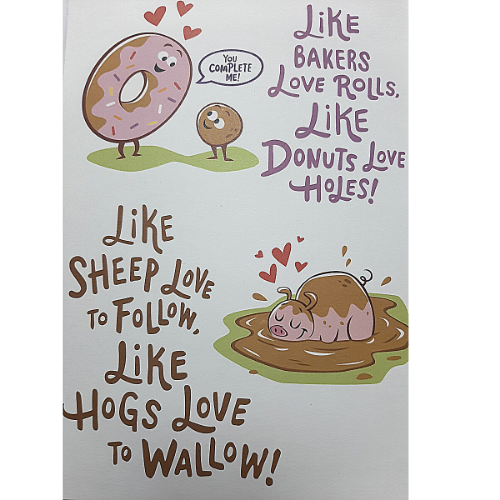 YOU
COMPLETE
ME!
LIKE
BAKERS
LOVE ROLLS,
LIKE
DONUTS LOVE
HOLES!
LIKE
SHEEP LOVE
TO FOLLOW,
LIKE
HOGS LOVE
TO WALLOW!